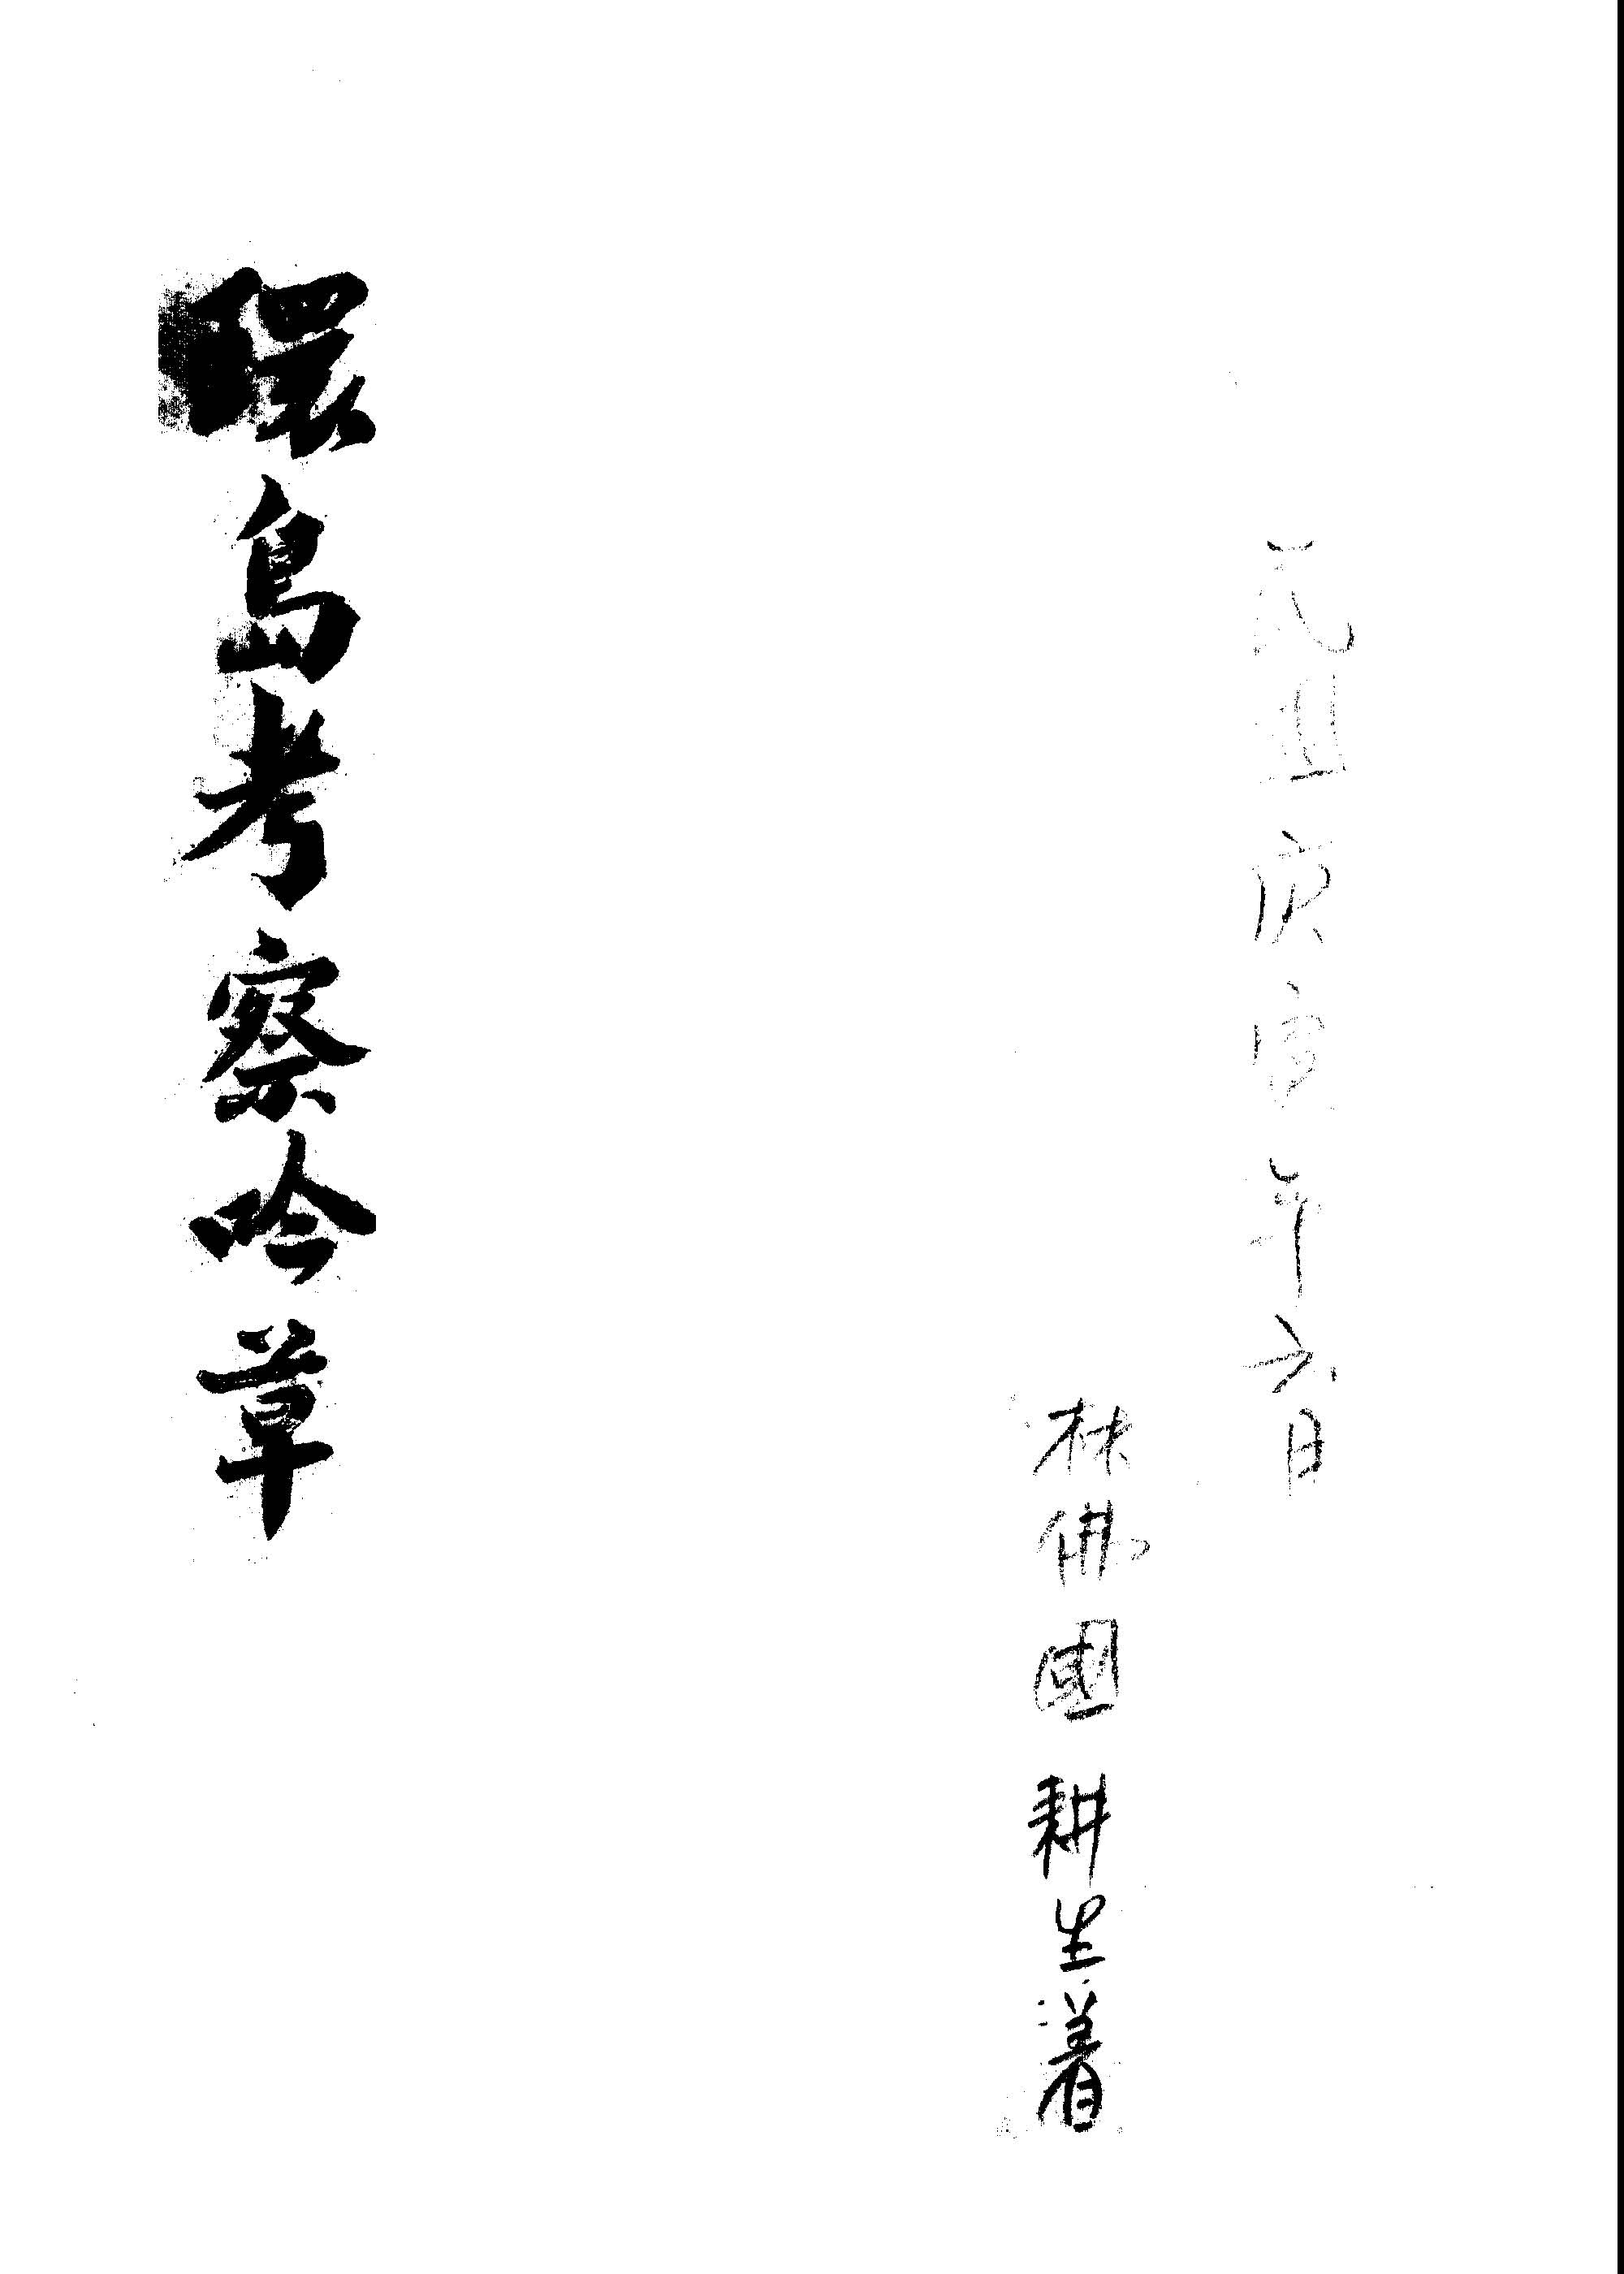 民國庚寅年六月
林佛國耕生着
環島考察吟草